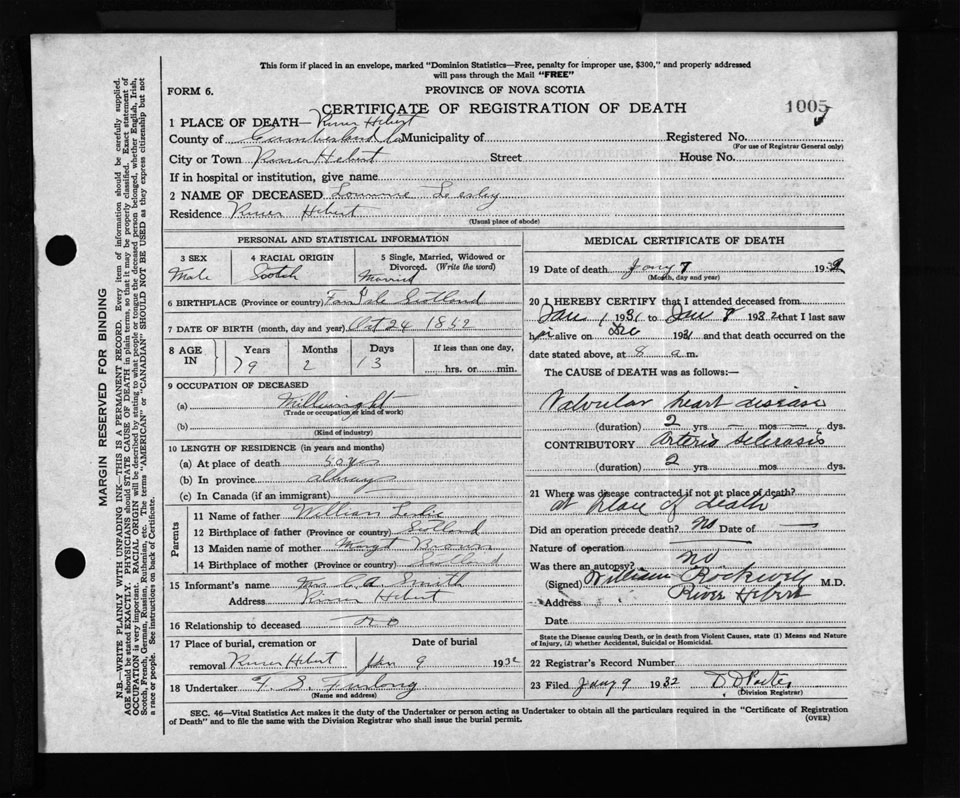 This form if placed in an envelope, marked "Dominion Statistics—Free, penalty for improper use, $300," and properly addressed
will pass through the Mail "FREE"
FORM 6.
PROVINCE OF NOVA SCOTIA
CERTIFICATE OF REGISTRATION OF DEATH
1005
1 PLACE OF DEATH— River Hebert
County of Cumberland Co Municipality of Registered No.
(For use of Registrar General only)
City or Town River Hebert Street House No.
If in hospital or institution, give name
2 NAME OF DECEASED Lesley
Residence River Hebert
(Usual place of abode)
PERSONAL AND STATISTICAL INFORMATION
3 SEX 4 RACIAL ORIGIN 5 Single, Married, Widowed or
Divorced. (Write the word)
Male Scotch Married
6 BIRTHPLACE (Province or country) Fair Isle Scotland
7 DATE OF BIRTH (month, day and year) Oct 24 1852
8 AGE IN Years Months Days If less than one day,
79 2 13 hrs. or min.
9 OCCUPATION OF DECEASED
(a) Millwright
(Trade or occupation or kind of work)
(b)
(Kind of industry)
10 LENGTH OF RESIDENCE (in years and months)
(a) At place of death
(b) In province always
(c) In Canada (if an immigrant)
Parents
11 Name of father William Leslie
12 Birthplace of father (Province or country) Scotland
13 Maiden name of mother Margt Brown
14 Birthplace of mother (Province or country) Scotland
15 Informant's name Mrs C.A. Smith
Address River Hebert
16 Relationship to deceased no
17 Place of burial, cremation or Date of burial
removal River Hebert Jan 9 1932
18 Undertaker F. S. Furlong
(Name and address)
MEDICAL CERTIFICATE OF DEATH
19 Date of death Jany 7 1932
(Month, day and year)
20 I HEREBY CERTIFY that I attended deceased from
Jan 1 1931 to Jan 7 1932 that I last saw
him alive on Dec 1931 and that death occurred on the
date stated above, at 8 a m.
The CAUSE of DEATH was as follows:—
Valvular heart disease
(duration) 2 yrs — mos — dys.
CONTRIBUTORY Arterio Sclerosis
(duration) 2 yrs mos dys.
21 Where was disease contracted if not at place of death?
at place of death
Did an operation precede death? No Date of —
Nature of operation
Was there an autopsy? no
(Signed) William Rockwell M.D.
Address River Hebert
Date
State the Disease causing Death, or in death from Violent Causes, state (1) Means and Nature
of Injury, (2) whether Accidental, Suicidal or Homicidal.
22 Registrar's Record Number
23 Filed Jany 9 1932 D D Porter
(Division Registrar)
SEC. 46—Vital Statistics Act makes it the duty of the Undertaker or person acting as Undertaker to obtain all the particulars required in the "Certificate of Registration
of Death" and to file the same with the Division Registrar who shall issue the burial permit.
(OVER)
MARGIN RESERVED FOR BINDING
N.B.—WRITE PLAINLY WITH UNFADING INK—THIS IS A PERMANENT RECORD. Every item of information should be carefully supplied.
AGE should be stated EXACTLY. PHYSICIANS should STATE CAUSE OF DEATH in plain terms, so that it may be properly classified. Exact statement of
OCCUPATION is very important. RACIAL ORIGIN will be described by stating to what people or tongue the deceased person belonged, whether English, Irish,
Scotch, French, German, Russian, Ruthenian, etc. The terms "AMERICAN" or "CANADIAN" SHOULD NOT BE USED as they express citizenship but not
a race or people. See instructions on back of Certificate.